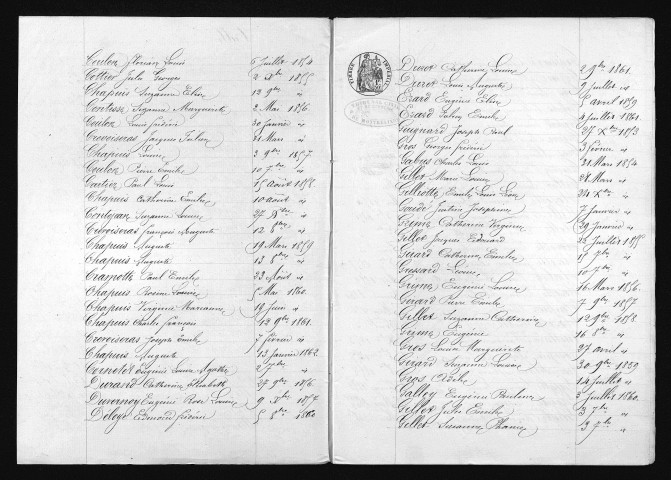 Coulon Florian Louis 5 Juillet 1854
Cottier Jules Georges 2 Xbre 1855
Chapuis Suzanne Elise 12 9bre "
Contesse Suzanne Marguerite 2 Mai 1856
Coulon Louis Frédéric 30 Janvier "
Crevoiserat Jacques Julien 31 Mars "
Chapuis Louise 3 9bre 1857
Coulon Pierre Emile 10 7bre "
Cartier Paul Louis 15 Août 1858
Chapuis Catherine Emilie 10 août "
Suzanne Louise 27 Xbre "
Crevoiserat François Auguste 12 8bre "
Chapuis Auguste 19 Mars 1859
Chapuis Auguste 13 8bre "
Cramotte Paul Emile 22 Août "
Chapuis Rosine Louise 5 Mai 1860
Chapuis Virginie Marianne 19 Juin "
Chapuis Charles François 12 9bre 1861
Crevoiserat Joseph Emile 7 février "
Chapuis Auguste 13 Janvier 1862
Eugénie Louise Agathe 2 7bre "
Durand Catherine Elisabeth 27 9bre 1856
Duvernoy Eugénie Rose Louise 9 Xbre 1857
Deloye Edmond Frédéric 5 8bre 1860
TIMBRE IMPERIAL
Catherine Louise 2 9bre 1861
Louis Auguste 9 Juillet "
Erard Eugénie Elise 5 avril 1859
Erard Julien Emile 4 Juillet 1861
Joseph Paul 25 Xbre 1853
Gros Georges Frédéric 3 février "
Charles Louis 21 Mars 1854
Gillet Marie Louise 21 Mars "
Gilliotte Emile Louis Léon 24 Xbre "
Justine Joséphine 7 Janvier "
Catherine Virginie 29 Janvier "
Gillet Jacques Edouard 26 Juillet 1855
Girard Catherine Emilie 15 7bre "
Louise 10 7bre "
Eugénie Louise 16 Mars 1856
Girard Pierre Emile 7 9bre 1857
Gillet Suzanne Catherine 12 9bre 1858
Eugène 16 8bre "
Gros Louise Marguerite 27 avril "
Girard Louise 30 9bre 1859
Gros 14 Juillet "
Eugénie Pauline 2 Juillet 1860
Gillet Jules Emile 3 7bre "
Gillet Suzanne 13 7bre "